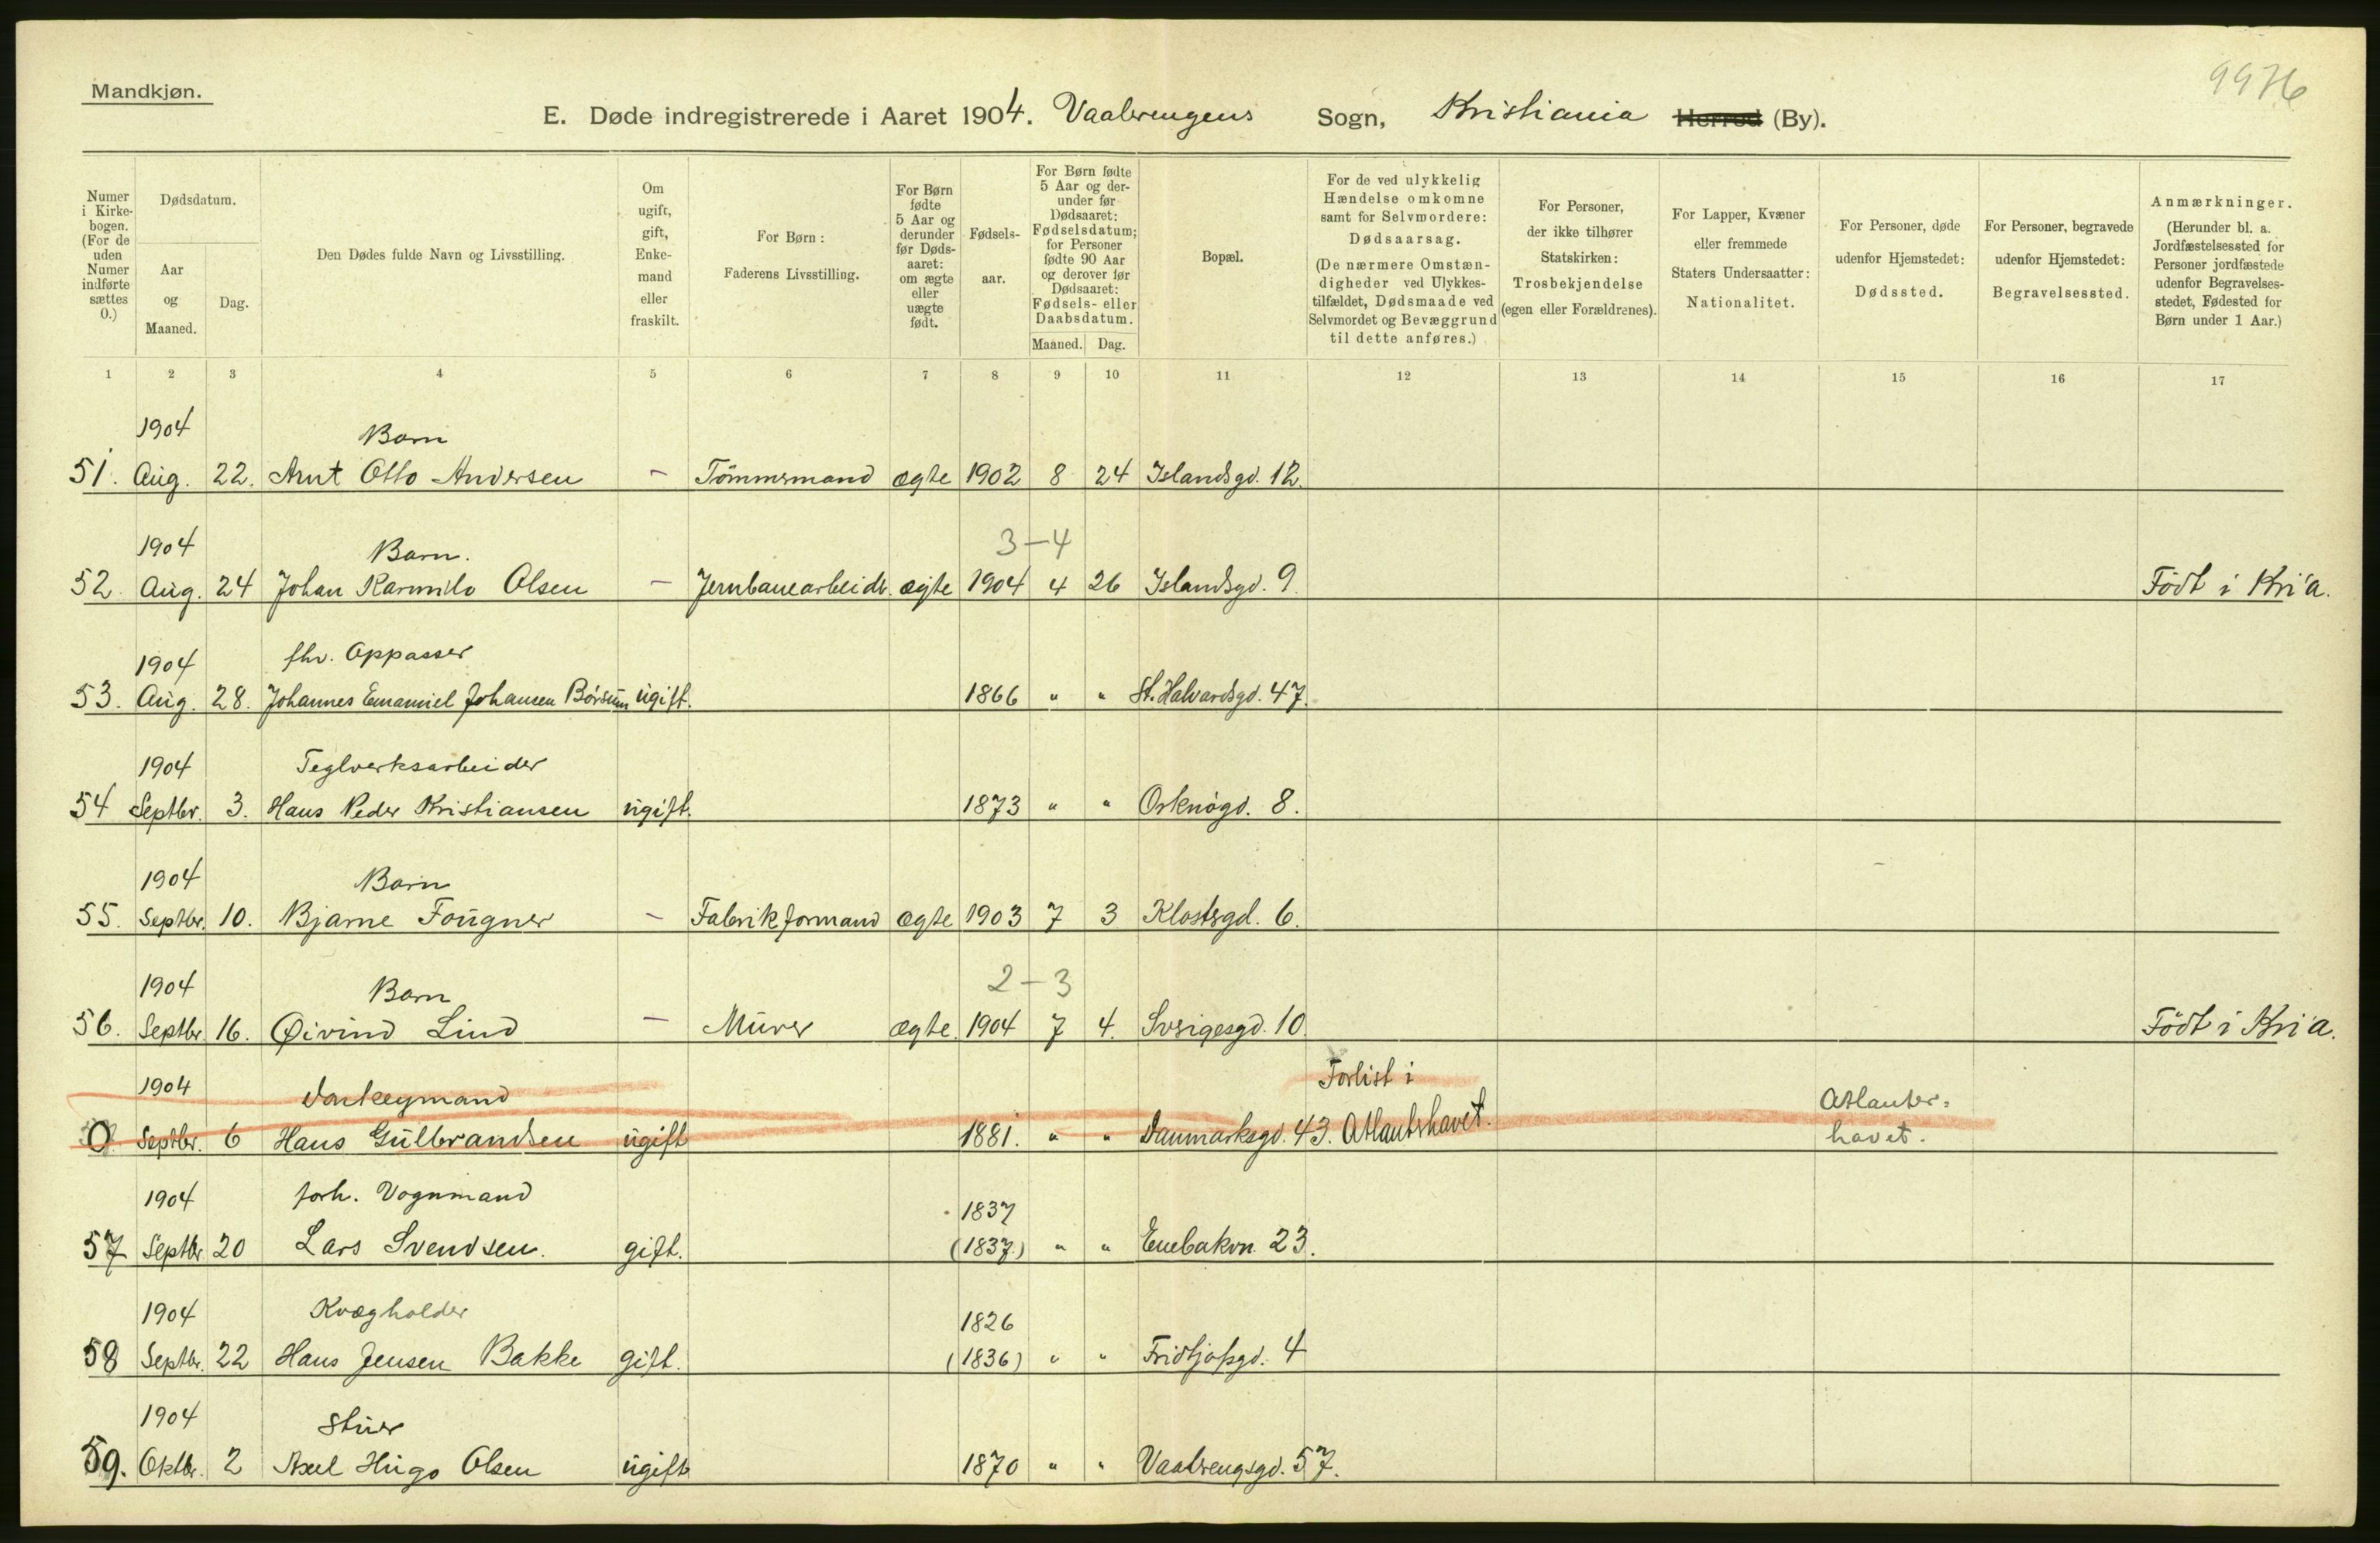 Mandkjøn.
9976
E. Døde indregistrerede i Aaret 1904. Vaalerengens Sogn, Kristiania Herred (By).
Numer i Kirkebogen. (For de uden Numer indførte sættes 0.)
Dødsdatum.
Aar og Maaned.
Dag.
Den Dødes fulde Navn og Livsstilling.
Om ugift, gift, Enkemand eller fraskilt.
For Børn: Faderens Livsstilling.
For Børn fødte 5 Aar og derunder før Dødsaaret: om ægte eller uægte født.
Fødselsaar.
For Børn fødte 5 Aar og derunder før Dødsaaret: Fødselsdatum; for Personer fødte 90 Aar og derover før Dødsaaret: Fødsels- eller Daabsdatum.
Maaned. Dag.
Bopæl.
For de ved ulykkelig Hændelse omkomne samt for Selvmordere: Dødsaarsag. (De nærmere Omstændigheder ved Ulykkestilfældet, Dødsmaade ved Selvmordet og Bevæggrund til dette anføres.)
For Personer, der ikke tilhører Statskirken: Trosbekjendelse (egen eller Forældrenes).
For Lapper, Kvæner eller fremmede Staters Undersaatter: Nationalitet.
For Personer, døde udenfor Hjemstedet: Dødssted.
For Personer, begravede udenfor Hjemstedet: Begravelsessted.
Anmærkninger. (Herunder bl. a. Jordfæstelsessted for Personer jordfæstede udenfor Begravelsesstedet, Fødested for Børn under 1 Aar.)
1 2 3 4 5 6 7 8 9 10 11 12 13 14 15 16 17
1904 Barn
51. Aug. 22. Arnt Otto Andersen – Tömmermand ægte 1902 8 24 Islandsgd. 12.
1904 Barn. 3-4
52. Aug. 24 Johan Karmilo Olsen – Jernbanearbeidr. ægte 1904 4 26 Islandsgd. 9. Födt i Kri'a.
1904 fhv. Oppasser
53. Aug. 28. Johannes Emanuel Johansen Börsum ugift. 1866 " " St. Halvardsgd. 47.
1904 Teglverksarbeider
54 Septbr. 3. Hans Peder Kristiansen ugift. 1873 " " Orknögd. 8.
1904 Barn
55. Septbr. 10. Bjarne Fougner – Fabrikformand ægte 1903 7 3 Klostergd. 6.
1904 Barn 2-3
56. Septbr. 16. Øivind Lind – Murer ægte. 1904 7 4. Sverigesgd. 10. Födt i Kri'a.
1904 Donkeymand Forlist i Atlanter-
0 Septbr. 6 Hans Gulbrandsen ugift 1881. " " Danmarksgd. 43. Atlantshavet. havet.
1904 forh. Vognmand 1837
57 Septbr 20 Lars Svendsen. gift. (1837.) " " Enebakvn. 23.
1904 Kvægholder 1826
58 Septbr. 22 Hans Jensen Bakke gift. (1836) " " Fridtjofsgd. 4
1904 Stuer
59. Oktbr. 2 Axel Hugo Olsen ugift 1870 " " Vaalrengsgd. 57.